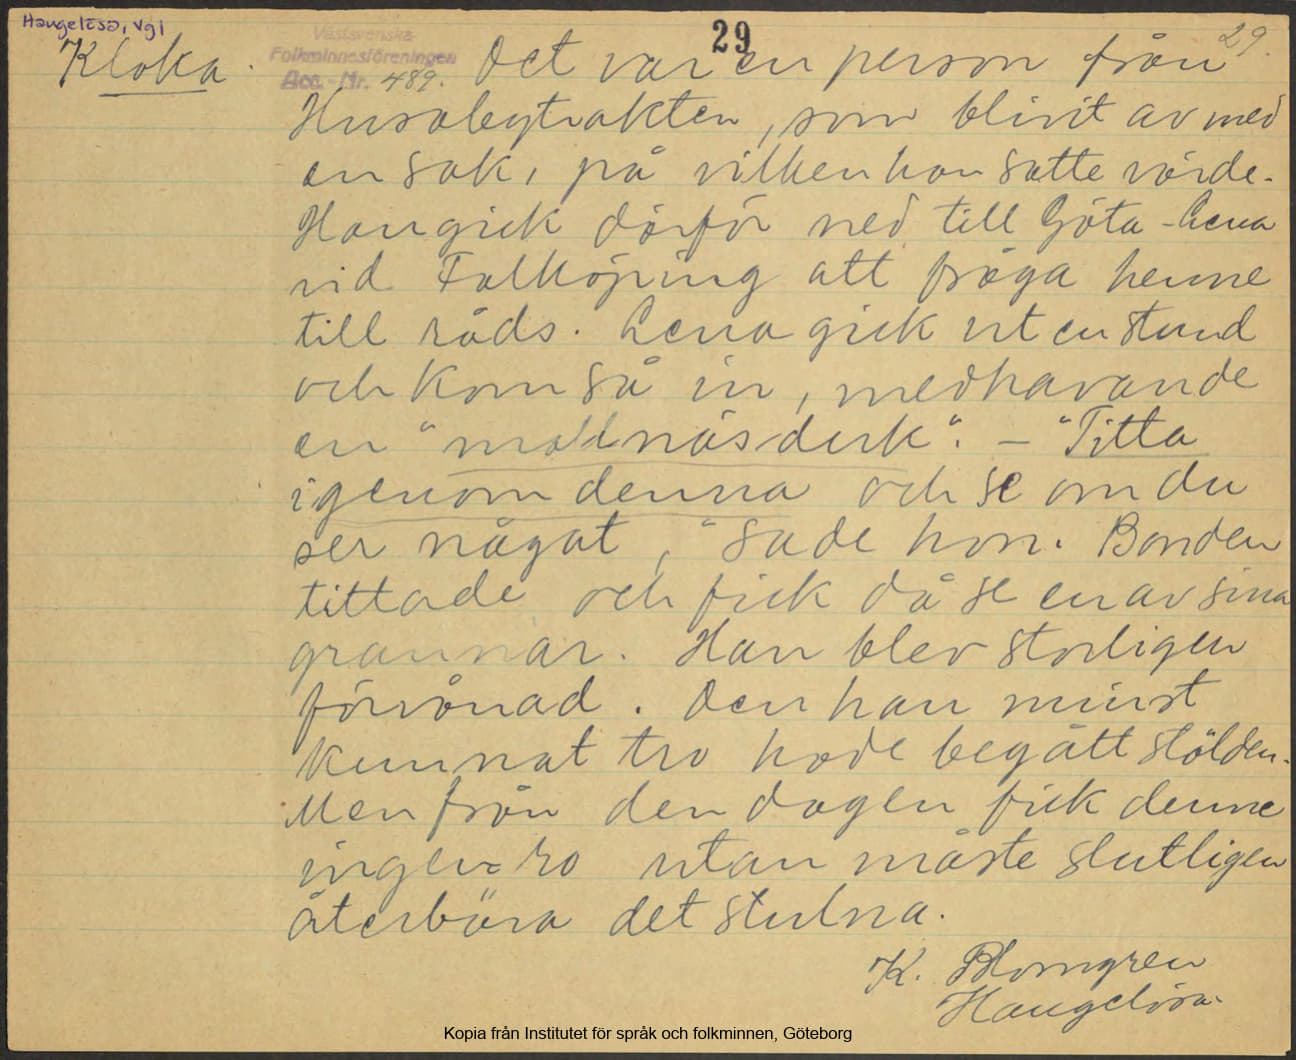 Hangelösa, Vgl
29
29.
Västsvenska
Folkminnesföreningen
Acc.-Nr. 489.
Kloka.
Det var en person från
Husabytrakten, som blivit av med
en sak, på vilken han satte värde.
Han gick därför ned till Göta-Lena
vid Falköping att fråga henne
till råds. Lena gick ut en stund
och kom så in, medhavande
en "mallnäsduk". — "Titta
igenom denna och se om du
ser något," sade hon. Bonden
tittade och fick då se en av sina
grannar. Han blev storligen
förvånad. Den han minst
kunnat tro hade begått stölden.
Men från den dagen fick denne
ingen ro utan måste slutligen
återbära det stulna.
K. Blomgren
Hangelösa.
Kopia från Institutet för språk och folkminnen, Göteborg